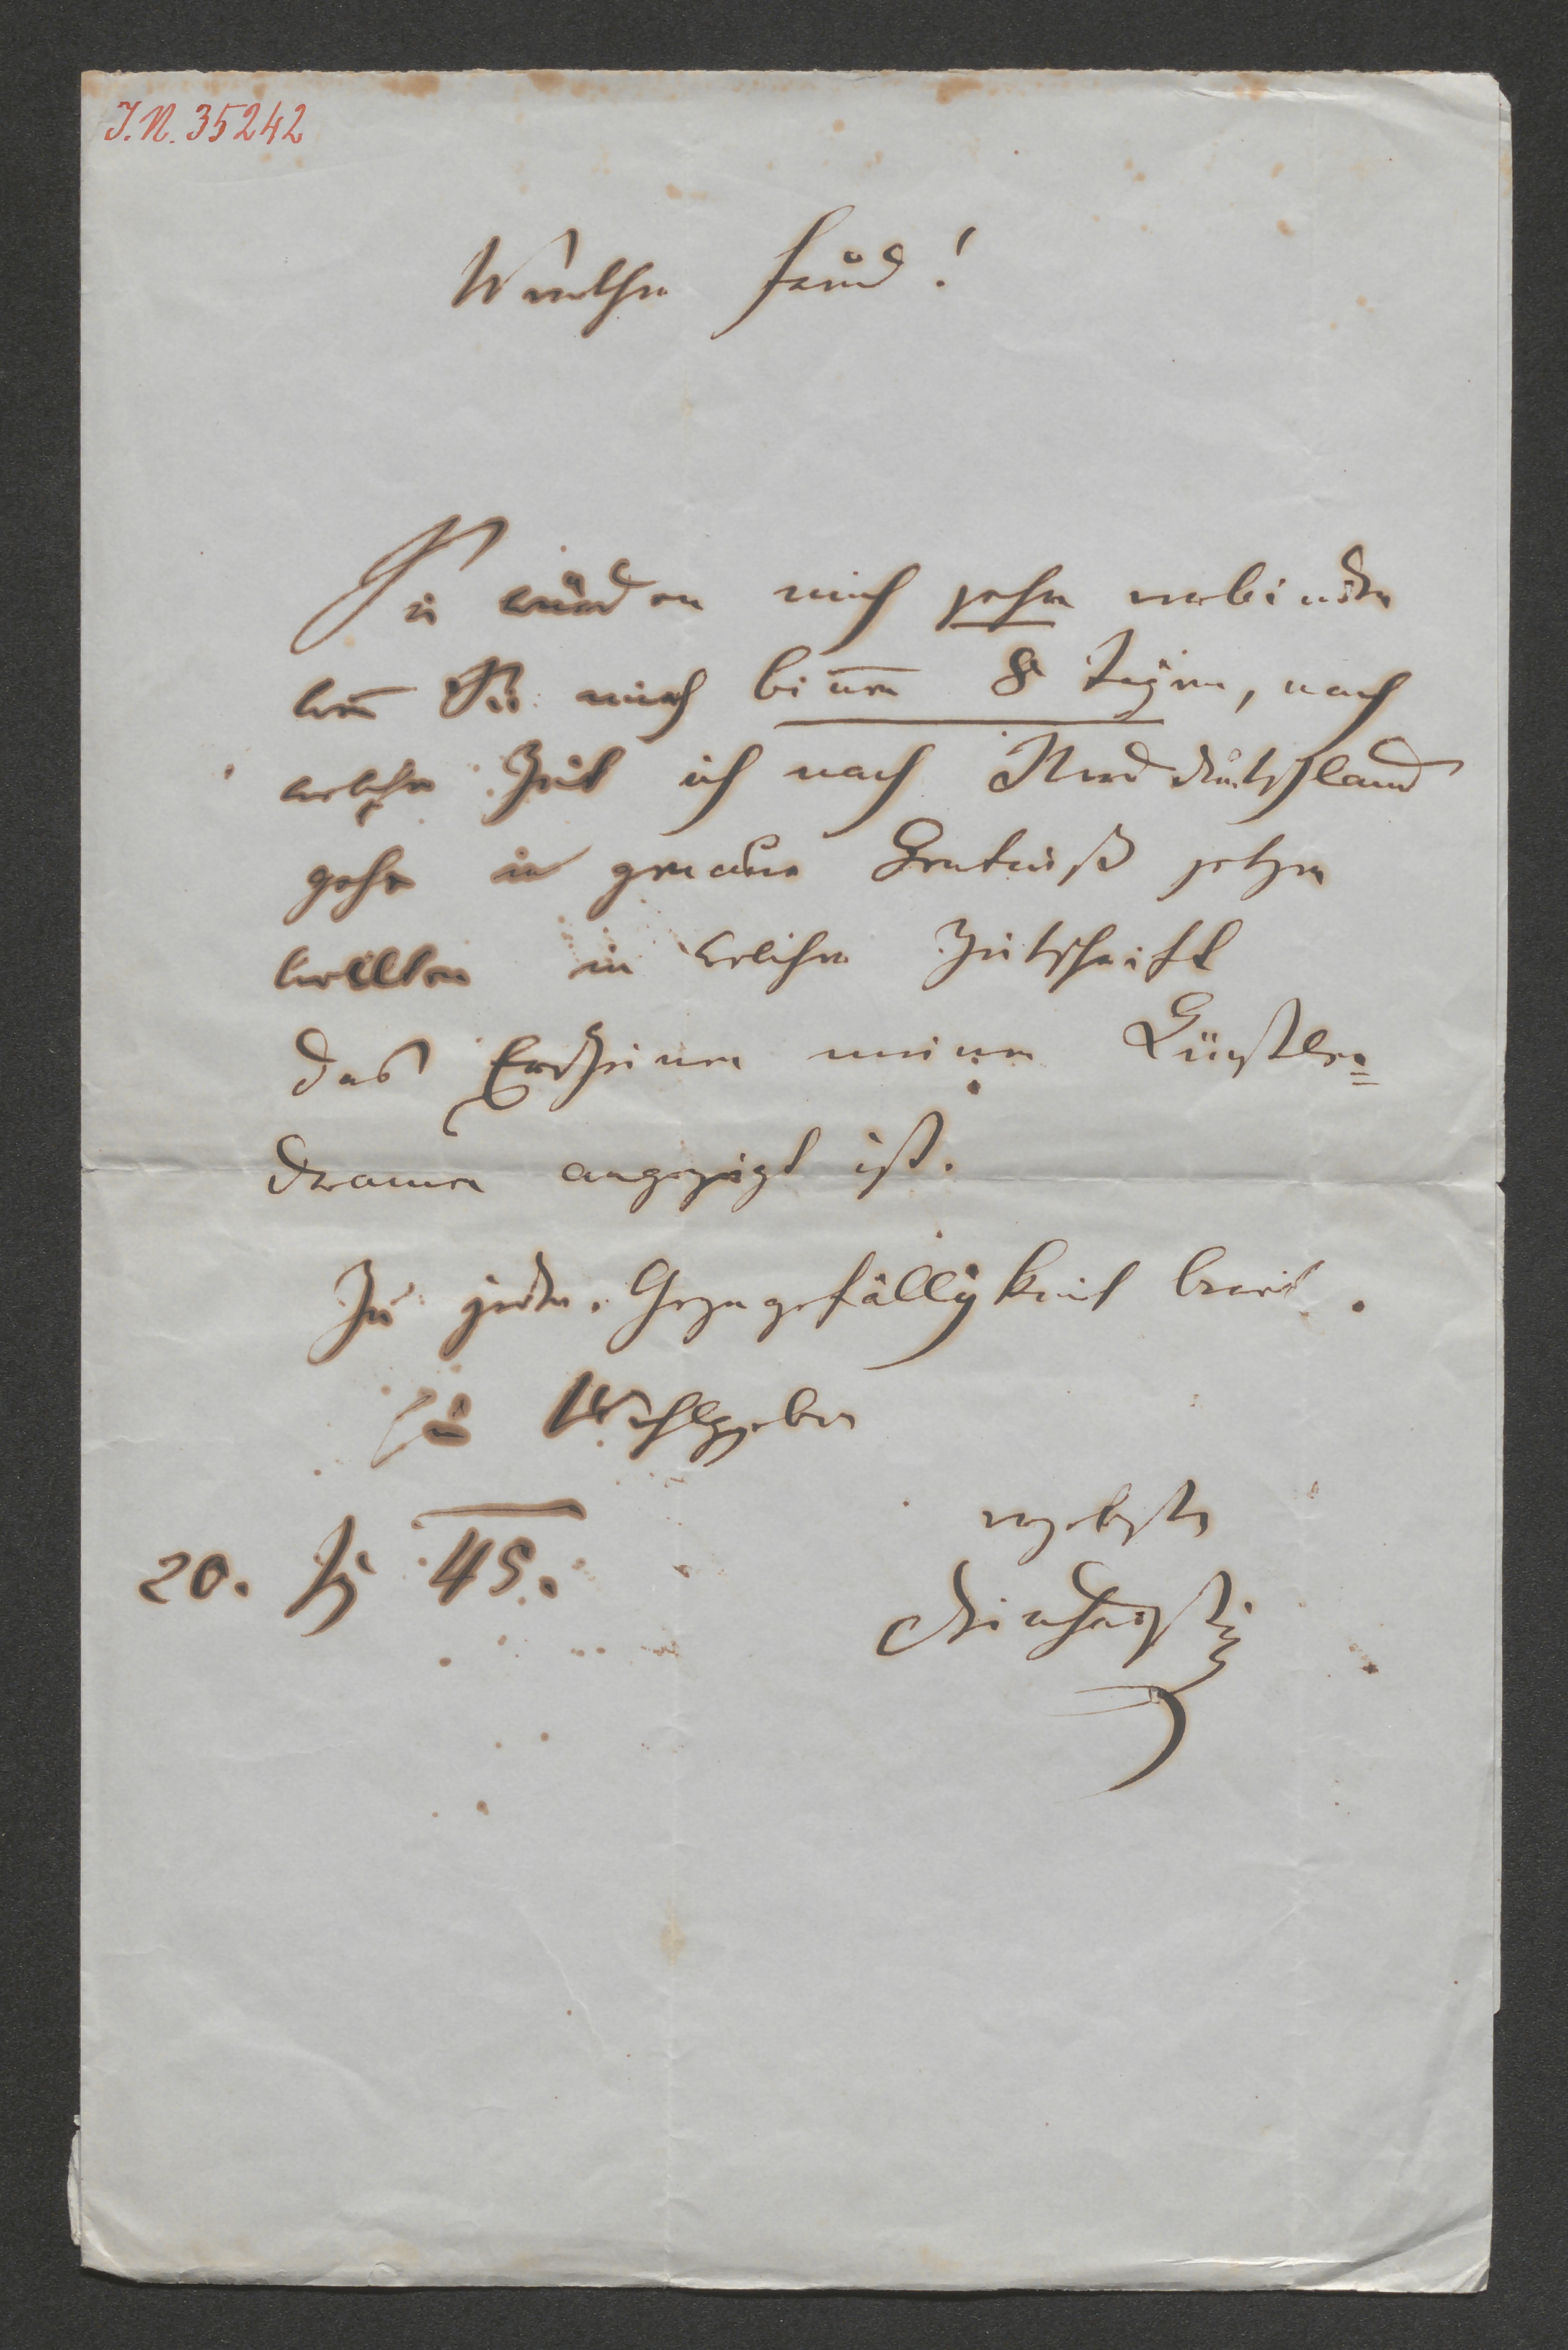 I. N. 35242
Werther Freund!
Sie würden mich sehr verbinden
wen̄ Sie mich bin̄en 8 Tagen, nach
welcher Zeit ich nach Norddeutschland
gehe in genaue Kentniß setzen
wollten in welcher Zeitschrift
das Erscheinen meiner Künstler=
dramen angezeigt ist.
Zu jeder Gegengefälligkeit bereit.
Eu Wohlgeboren
ergebenster
Deinhardstein
20. 45.